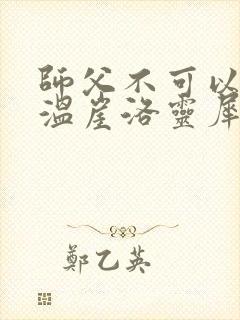 師父不可以
溫崖洛靈犀
鄭乙英